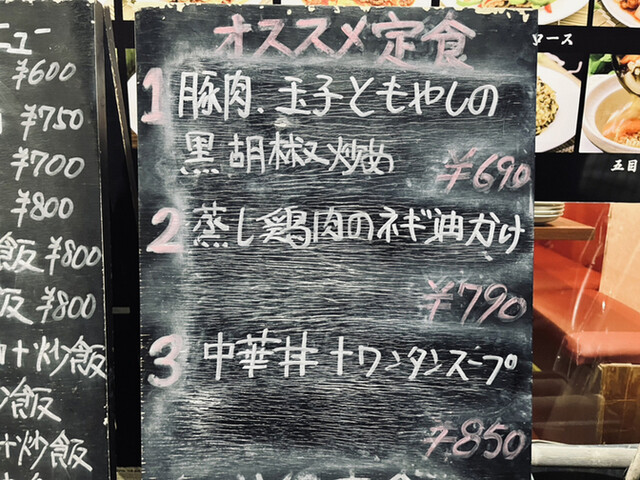 ニュー
¥600
¥750
¥700
¥800
飯 ¥800
飯 ¥800
+炒飯
炒飯
+炒飯
オススメ定食
1 豚肉、玉子ともやしの
黒胡椒炒め
¥690
2 蒸し鶏肉のネギ油かけ
¥790
3 中華丼+ワンタンスープ
¥850
ロース
五目